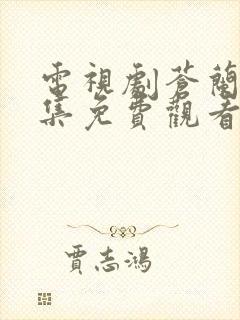 電視劇蒼蘭
集免費觀看
賈志鴻